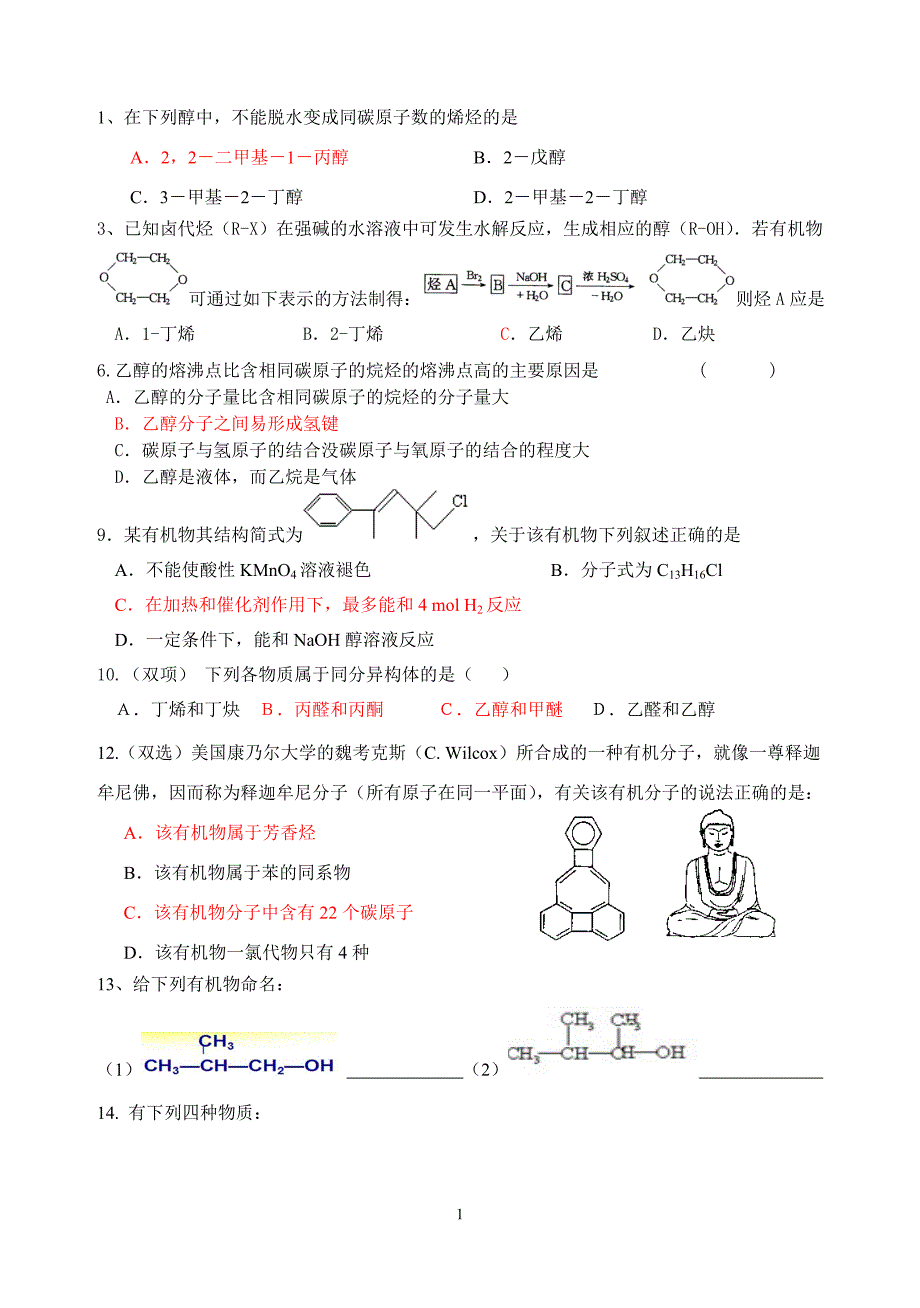 1、在下列醇中，不能脱水变成同碳原子数的烯烃的是
A．2，2－二甲基－1－丙醇 B．2－戊醇
C．3－甲基－2－丁醇 D．2－甲基－2－丁醇
3、已知卤代烃（R-X）在强碱的水溶液中可发生水解反应，生成相应的醇（R-OH）．若有机物
CH₂—CH₂ O O CH₂—CH₂ 可通过如下表示的方法制得： 烃A Br₂ B NaOH +H₂O C 浓H₂SO₄ －H₂O CH₂—CH₂ O O CH₂—CH₂ 则烃A应是
A．1-丁烯 B．2-丁烯 C．乙烯 D．乙炔
6.乙醇的熔沸点比含相同碳原子的烷烃的熔沸点高的主要原因是 ( )
A．乙醇的分子量比含相同碳原子的烷烃的分子量大
B．乙醇分子之间易形成氢键
C．碳原子与氢原子的结合没碳原子与氧原子的结合的程度大
D．乙醇是液体，而乙烷是气体
9．某有机物其结构简式为 Cl ，关于该有机物下列叙述正确的是
A．不能使酸性 KMnO₄ 溶液褪色 B．分子式为 C₁₃H₁₆Cl
C．在加热和催化剂作用下，最多能和 4 mol H₂ 反应
D．一定条件下，能和 NaOH 醇溶液反应
10.（双项） 下列各物质属于同分异构体的是（ ）
A．丁烯和丁炔 B．丙醛和丙酮 C．乙醇和甲醚 D．乙醛和乙醇
12.（双选）美国康乃尔大学的魏考克斯（C. Wilcox）所合成的一种有机分子，就像一尊释迦
牟尼佛，因而称为释迦牟尼分子（所有原子在同一平面），有关该有机分子的说法正确的是：
A．该有机物属于芳香烃
B．该有机物属于苯的同系物
C．该有机物分子中含有 22 个碳原子
D．该有机物一氯代物只有 4 种
13、给下列有机物命名：
CH₃ CH₃ CH₃
（1） CH₃—CH—CH₂—OH ____________（2） CH₃—CH—CH—OH ____________
14. 有下列四种物质：
1